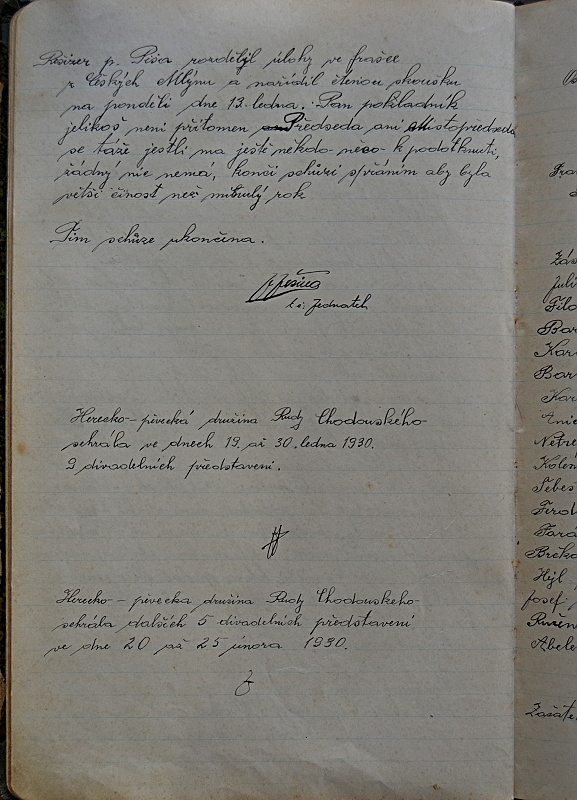 Resiser p. Píša rozdělyl úlohy ve frašce
z Českých Mlýnu a nařídil čtenou skousku
na pondělí dne 13. ledna. Pan pokladník
jelikoš není přítomen Předseda ani Místopředseda
se táže jestli ma ještě někdo něco k podotknutí,
žádný nic nemá, končí schůzi s přáním aby byla
větší činost než minulý rok
Tím schůze ukončena.
t. č. Jednatel
Herecko-pěvecká družina Rudy Chodouského
sehrála ve dnech 19. až 30. ledna 1930.
9 divadelních představení.
Herecko-pěvecka družina Rudy Chodouskeho
sehrála dalších 5 divadelních představení
ve dne 20 až 25 února 1930.
Zás
Juli
Filo
Bar
Kar
Bar
Kar
Anič
Netře
Kolen
Šebes
Ferd
Fara
Brčko
Hýl
Josef
Ružen
Abele
Začáte